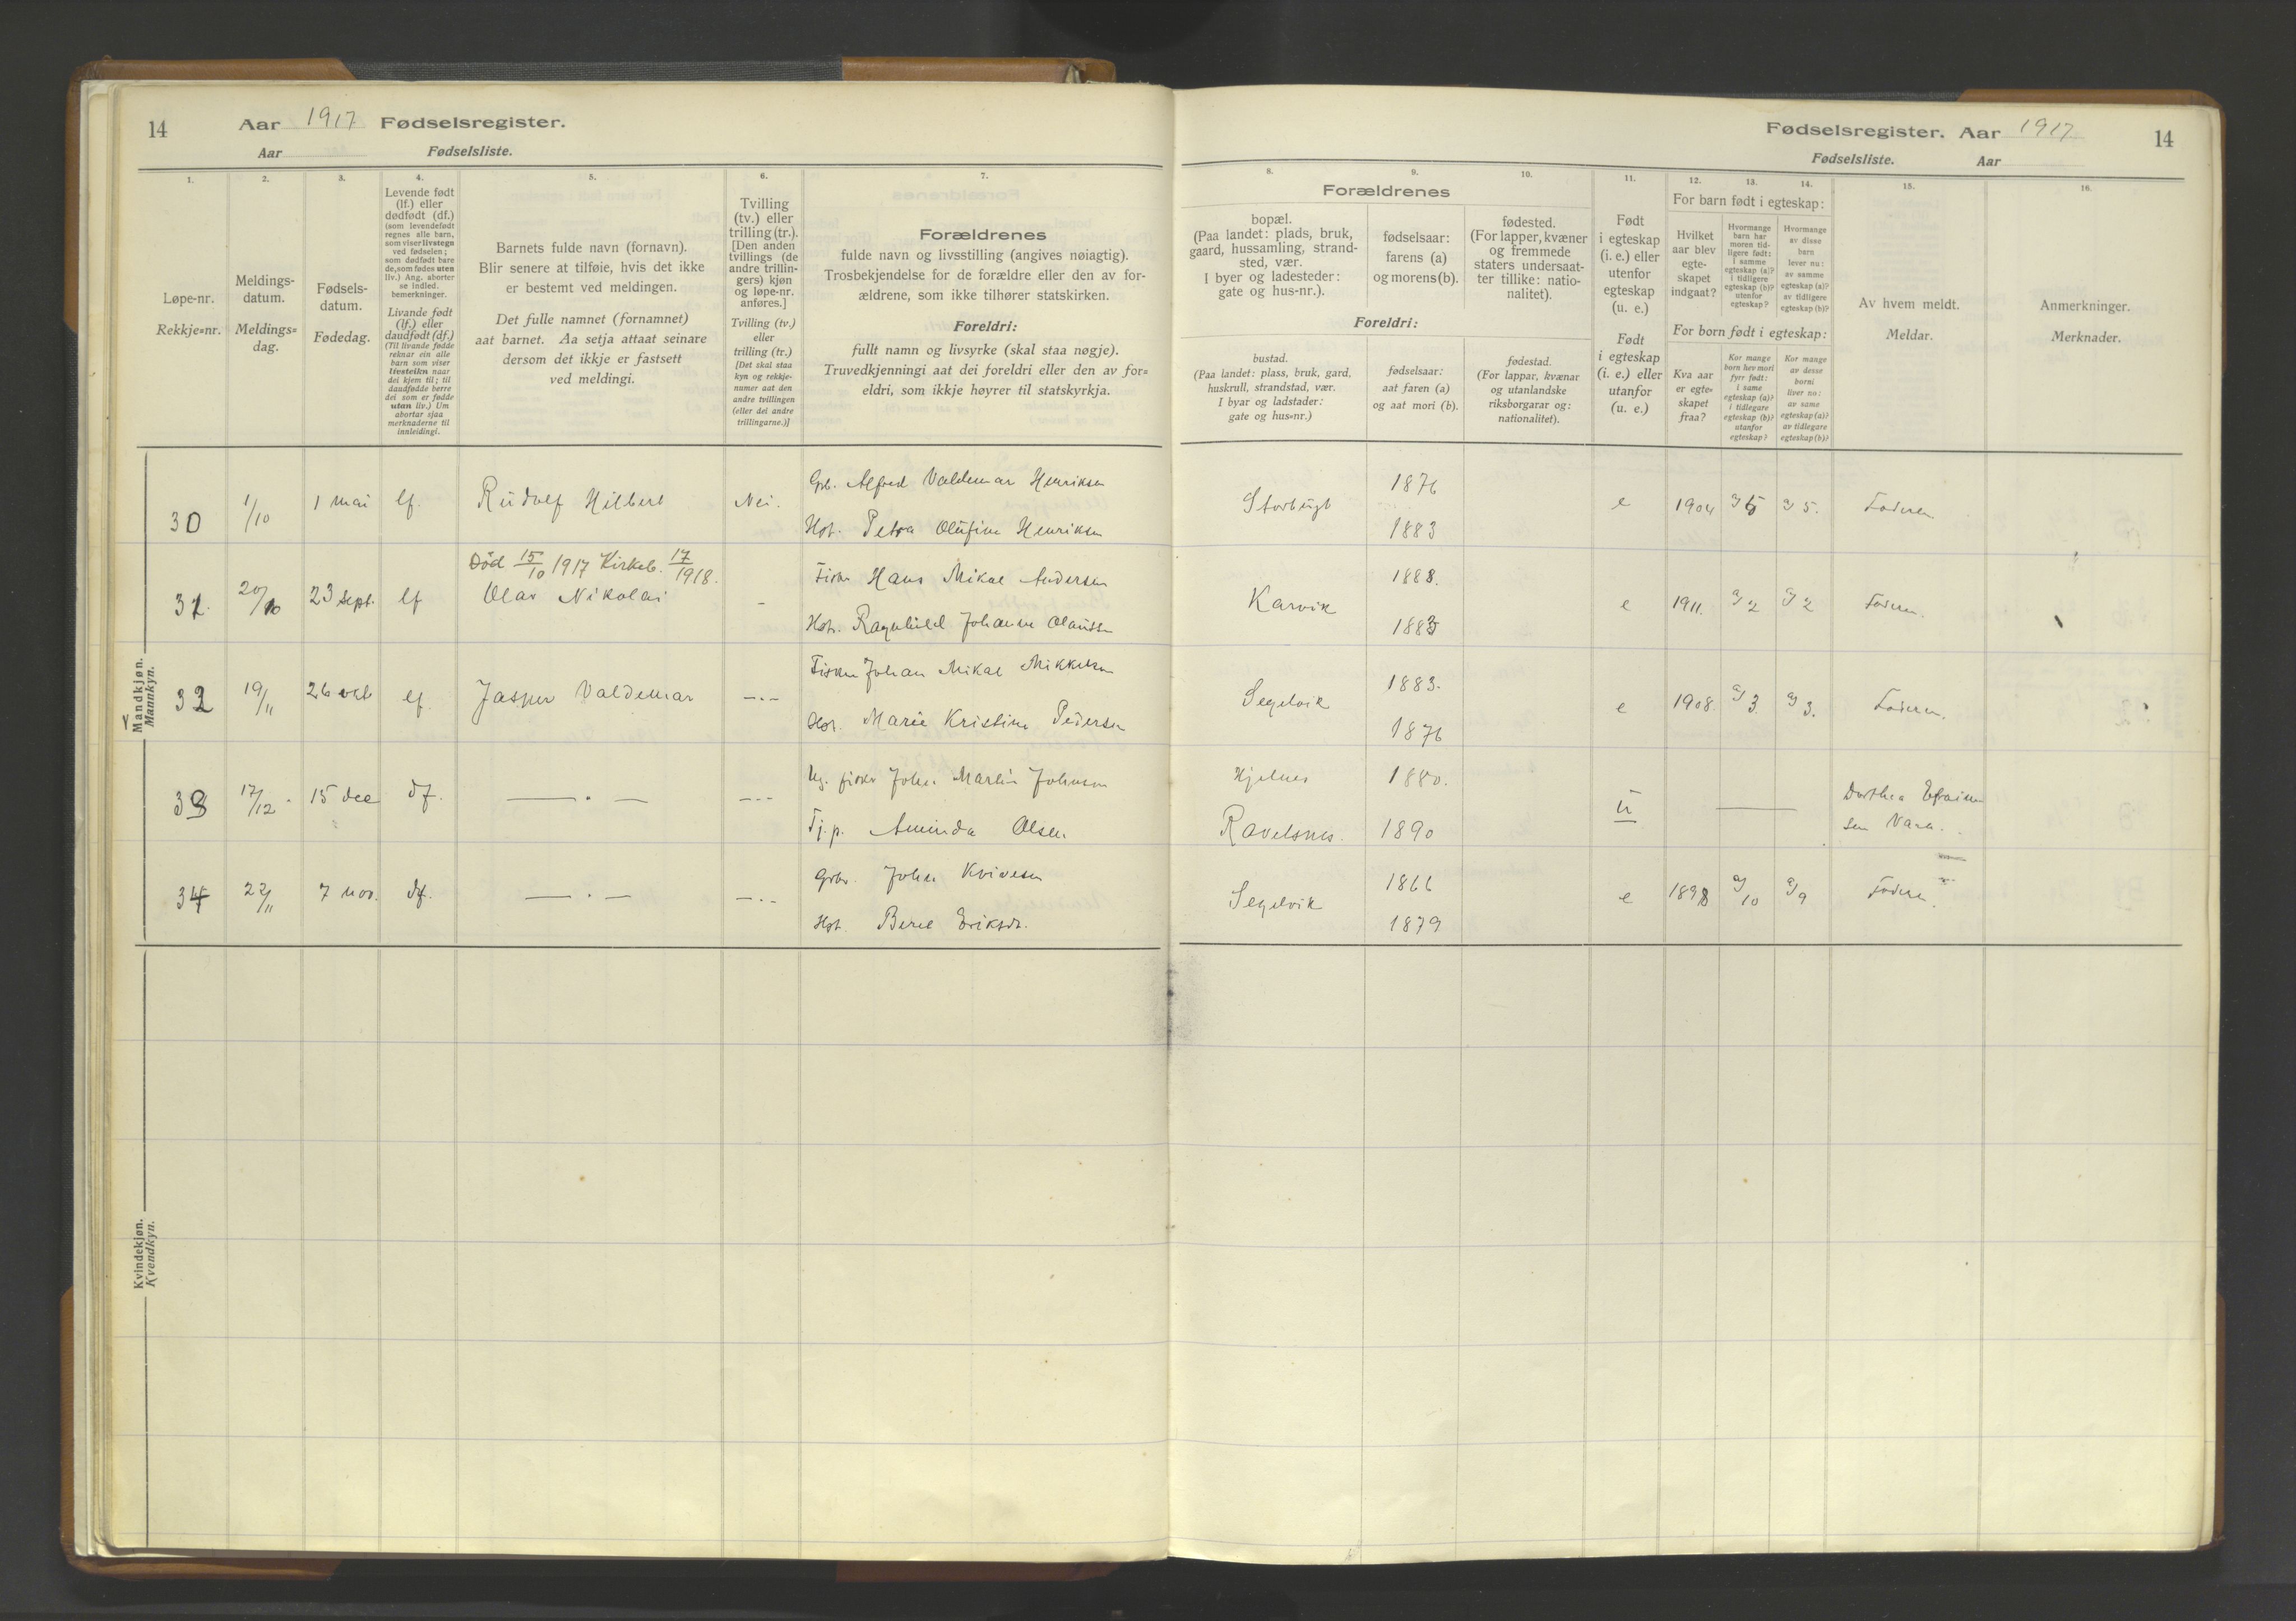 14 Aar 1917 Fødselsregister.
Aar Fødselsliste.
1. 2. 3. 4. 5. 6. 7.
Løpe-nr.
Rekkje=nr.
Meldings-
datum.
Meldings=
dag.
Fødsels-
datum.
Fødedag.
Levende født
(lf.) eller
dødfødt (df.)
(som levendefødt
regnes alle barn,
som viser livstegn
ved fødselen;
som dødfødt bare
de, som fødes uten
liv.) Ang. aborter
se indled.
bemerkninger.
Livande født
(lf.) eller
daudfødt (df.)
(Til livande fødde
reknar ein alle
born som viser
livsteikn naar
dei kjem til; til
daudfødde berre
dei som er fødde
utan liv.) Um
abortar sjaa
merknaderne til
innleidingi.
Barnets fulde navn (fornavn).
Blir senere at tilføie, hvis det ikke
er bestemt ved meldingen.
Det fulle namnet (fornamnet)
aat barnet. Aa setja attaat seinare
dersom det ikkje er fastsett
ved meldingi.
Tvilling
(tv.) eller
trilling (tr.).
[Den anden
tvillings (de
andre trillin-
gers) kjøn
og løpe-nr.
anføres.]
Tvilling (tv.)
eller
trilling (tr.)
[Det skal staa
kyn og rekkje-
numer aat den
andre tvillingen
(eller dei andre
trillingarne.)]
Forældrenes
fulde navn og livsstilling (angives nøiagtig).
Trosbekjendelse for de forældre eller den av for-
ældrene, som ikke tilhører statskirken.
Foreldri:
fullt namn og livsyrke (skal staa nøgje).
Truvedkjenningi aat dei foreldri eller den av for=
eldri, som ikkje høyrer til statskyrkja.
Mandkjøn.
Mannkyn.
30 1/10 1 mai lf. Rudolf Hilbert Nei. Grb. Alfred Valdemar Henriksen
Hst. Petra Olufine Henriksen
Død 15/10 1917 Kirkeb. 17/1918.
31. 20/10 23 sept. lf Olav Nikolai - Fisker Hans Mikal Andersen
Hstr. Ragnhild Johanne Olaussen
32 19/11 26 okt lf. Jasper Valdemar —.- Fisker Johan Mikal Mikkelsen
Hstr. Marie Kristine Pedersen
33 17/12. 15 dec df. —.— —.- Ug. fisker Johan Martin Johnsen
Tj.p. Aminda Olsen
34 22/11 7 nov. df. —.— —.- Grbr. Johan
Hst. Berit Eriksdr.
Kvindekjøn.
Kvendkyn.
Fødselsregister. Aar 1917 14
Fødselsliste. Aar
8. 9. 10. 11. 12. 13. 14. 15. 16.
Forældrenes
bopæl.
(Paa landet: plads, bruk,
gaard, hussamling, strand-
sted, vær.
I byer og ladesteder:
gate og hus-nr.).
fødselsaar:
farens (a)
og morens (b).
fødested.
(For lapper, kvæner
og fremmede
staters undersaat-
ter tillike: natio-
nalitet).
Foreldri:
bustad.
(Paa landet: plass, bruk, gard,
huskrull, strandstad, vær.
I byar og ladstader:
gate og hus=nr.)
fødselsaar:
aat faren (a)
og aat mori (b).
fødestad.
(For lappar, kvænar
og utanlandske
riksborgarar og:
nationalitet).
Født
i egteskap
(i. e.) eller
utenfor
egteskap
(u. e.)
Født
i egteskap
(i. e.) eller
utanfor
(u. e.)
For barn født i egteskap:
Hvilket
aar blev
egte-
skapet
indgaat?
Hvormange
barn har
moren tid-
ligere født:
i samme
egteskap (a)?
i tidligere
egteskap (b)?
utenfor
egteskap?
Hvormange
av disse
barn
lever nu:
av samme
egteskap (a)?
av tidligere
egteskap (b)?
For born født i egteskap:
Kva aar
er egte=
skapet
fraa?
Kor mange
born hev mori
fyrr født:
i same
egteskap (a)?
i tidlegare
egteskap (b)?
utanfor
egteskap?
Kor mange
av desse
borni
liver no:
av same
egteskap (a)?
av tidlegare
egteskap (b)?
Av hvem meldt.
Meldar.
Anmerkninger.
Merknader.
Storbugt 1876 1883 e 1904 a) 5 a) 5. Faderen
Karvik 1888. 1883 e 1911. a) 2 a) 2 Faderen.
Segelvik 1883. 1876 e 1908. a) 3. a) 3. Faderen.
Hjelnes 1880.
Ravelsnes. 1890 u — Dorthea
Segelvik 1866 1879 e 1898 a) 10 a) 9 Faderen.